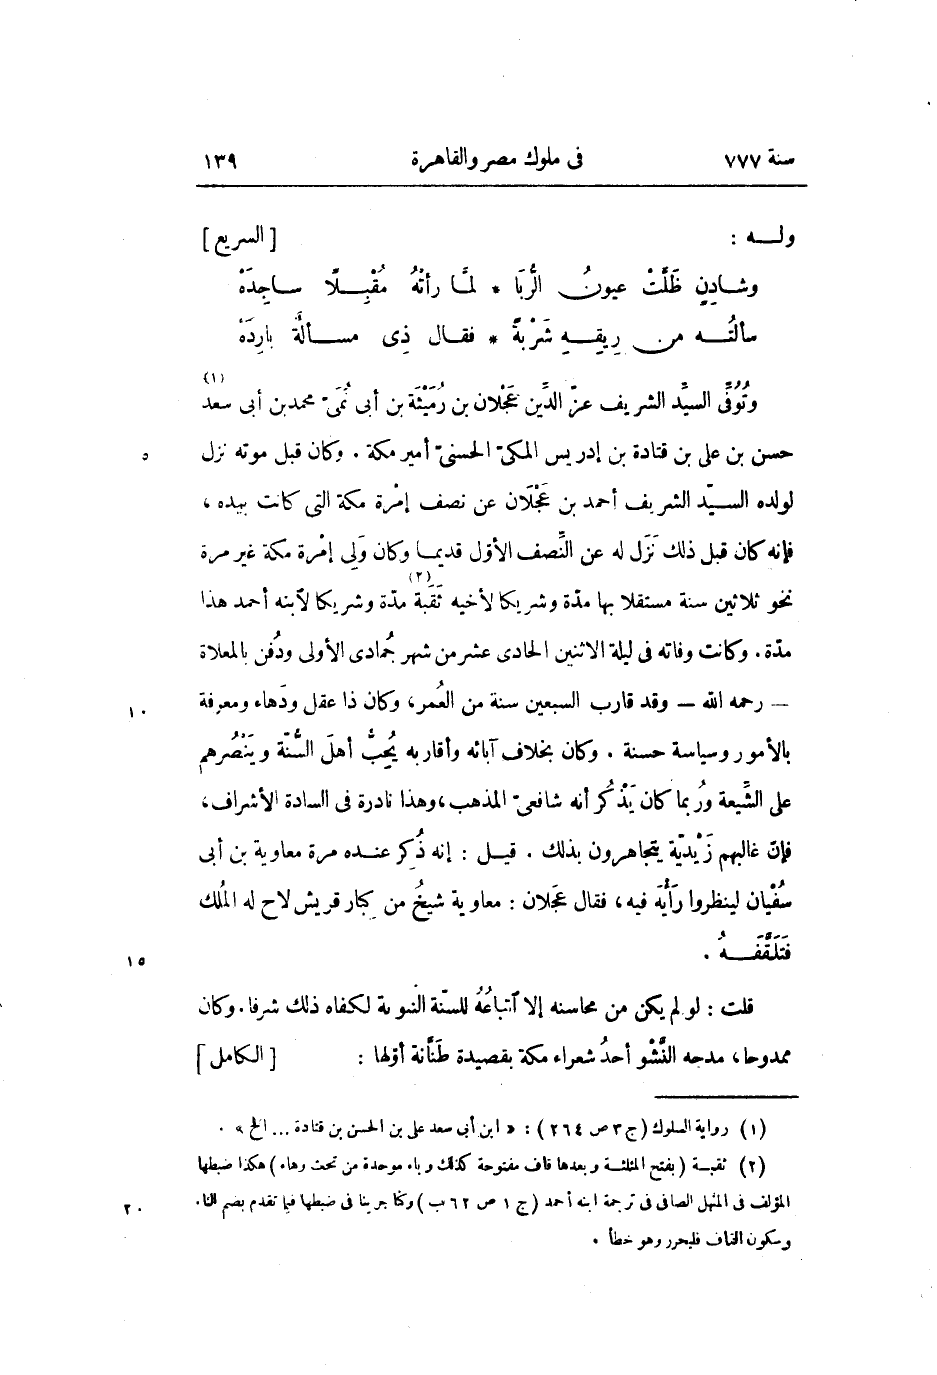 سنة ٧٧٧ فى ملوك مصر والقاهرة ١٣٩
ولـه : [السريع]
وشادِنٍ ظَلَّتْ عيونُ الرُّبَا * لمَّا رأتْهُ مُقْبِلًا ساجِدَهْ
سألتُه من رِيقِهِ شَرْبةً * فقال ذِى مسألةٌ بارِدَهْ
وتُوُفِّى السيِّد الشريف عزّ الدِّين عَجْلان بن رُمَيْثَة بن أبى نُمَىّ محمد بن أبى سعد (١)
حسن بن على بن قتادة بن إدريس المكىّ الحسنىّ أمير مكة . وكان قبل موته نزل ٥
لولده السيّد الشريف أحمد بن عَجْلَان عن نصف إمْرة مكة التى كانت بيده ،
فإنه كان قبل ذلك نَزَل له عن النِّصف الأوّل قديما وكان وَلِى إمْرة مكة غير مرة
نحو ثلاثين سنة مستقلا بها مدّة وشريكا لأخيه ثَقَبَة (٢) مدّة وشريكا لآبنه أحمد هذا
مدّة. وكانت وفاته فى ليلة الاثنين الحادى عشر من شهر جُمادى الأولى ودُفن بالمعلاة
— رحمه الله — وقد قارب السبعين سنة من العُمر، وكان ذا عقل ودَهاء ومعرفة ١٠
بالأمور وسياسة حسنة . وكان بخلاف آبائه وأقاربه يُحِبُّ أهلَ السُّنّة ويَنْصُرهم
على الشِّيعة ورُبما كان يَذْكُر أنه شافعىّ المذهب، وهذا نادرة فى السادة الأشراف،
فإنّ غالبهم زَيْديّة يتجاهرون بذلك . قيـل : إنه ذُكِر عنده مرة معاوية بن أبى
سُفْيان لينظروا رَأْيَه فيه، فقال عَجْلان : معاوية شيخُ من كِبار قريش لاح له المُلك
فَتَلَقَّفَهُ . ١٥
قلت : لو لم يكن من محاسنه إلا آتباعُهُ للسنّة النبوية لكفاه ذلك شرفا. وكان
ممدوحا، مدحه النَّشْو أحدُ شعراء مكة بقصيدة طَنَّانة أوّلها : [الكامل]
(١) رواية السلوك (ج ٣ ص ٢٦٤) : « ابن أبى سعد على بن الحسن بن قتادة ... الخ » .
(٢) ثقبـة (بفتح المثلثة وبعدها قاف مفتوحة كذلك وباء موحدة من تحت وهاء) هكذا ضبطها
المؤلف فى المنهل الصافى فى ترجمة ابنه أحمد (ج ١ ص ٦٢ ب) وكنا جرينا فى ضبطها فيما تقدم بضم الثاء ٢٠
وسكون القاف فليحرر وهو خطأ .